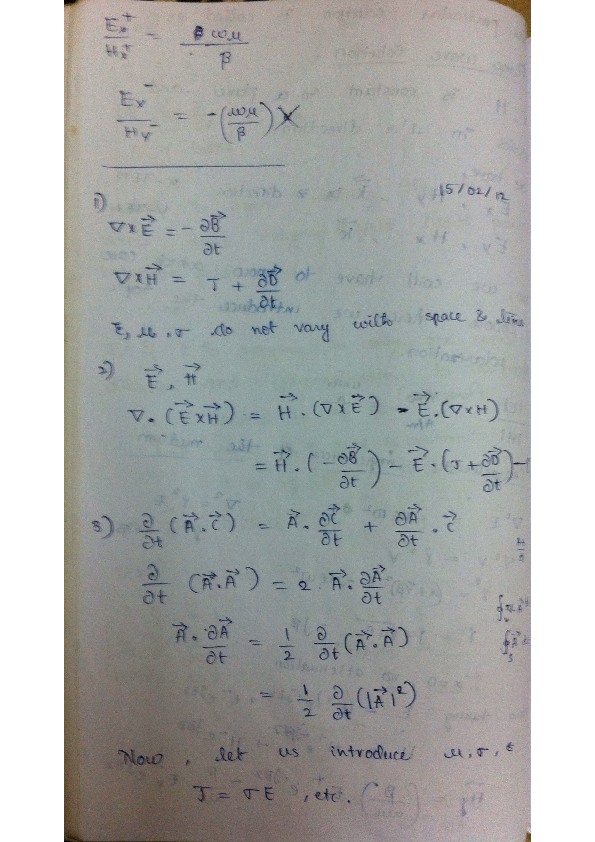 Ex⁺ / Hx⁺ = ωμ / β
Ex⁻ / Hy⁻ = -(ωμ / β)
15/02/12
1)
∇×E⃗ = - ∂B⃗/∂t
∇×H⃗ = J + ∂D⃗/∂t
ε, μ, σ do not vary with space & time
2) E⃗, H⃗
∇. (E⃗×H⃗) = H⃗. (∇×E⃗) - E⃗.(∇×H)
= H⃗. (-∂B⃗/∂t) - E⃗. (J + ∂D⃗/∂t)
3) ∂/∂t (A⃗.C⃗) = A⃗. ∂C⃗/∂t + ∂A⃗/∂t . C⃗
∂/∂t (A⃗.A⃗) = 2 A⃗. ∂A⃗/∂t
A⃗. ∂A⃗/∂t = 1/2 ∂/∂t (A⃗.A⃗)
= 1/2 ∂/∂t (|A⃗|²)
Now, let us introduce μ, σ, ε
J = σE , etc.